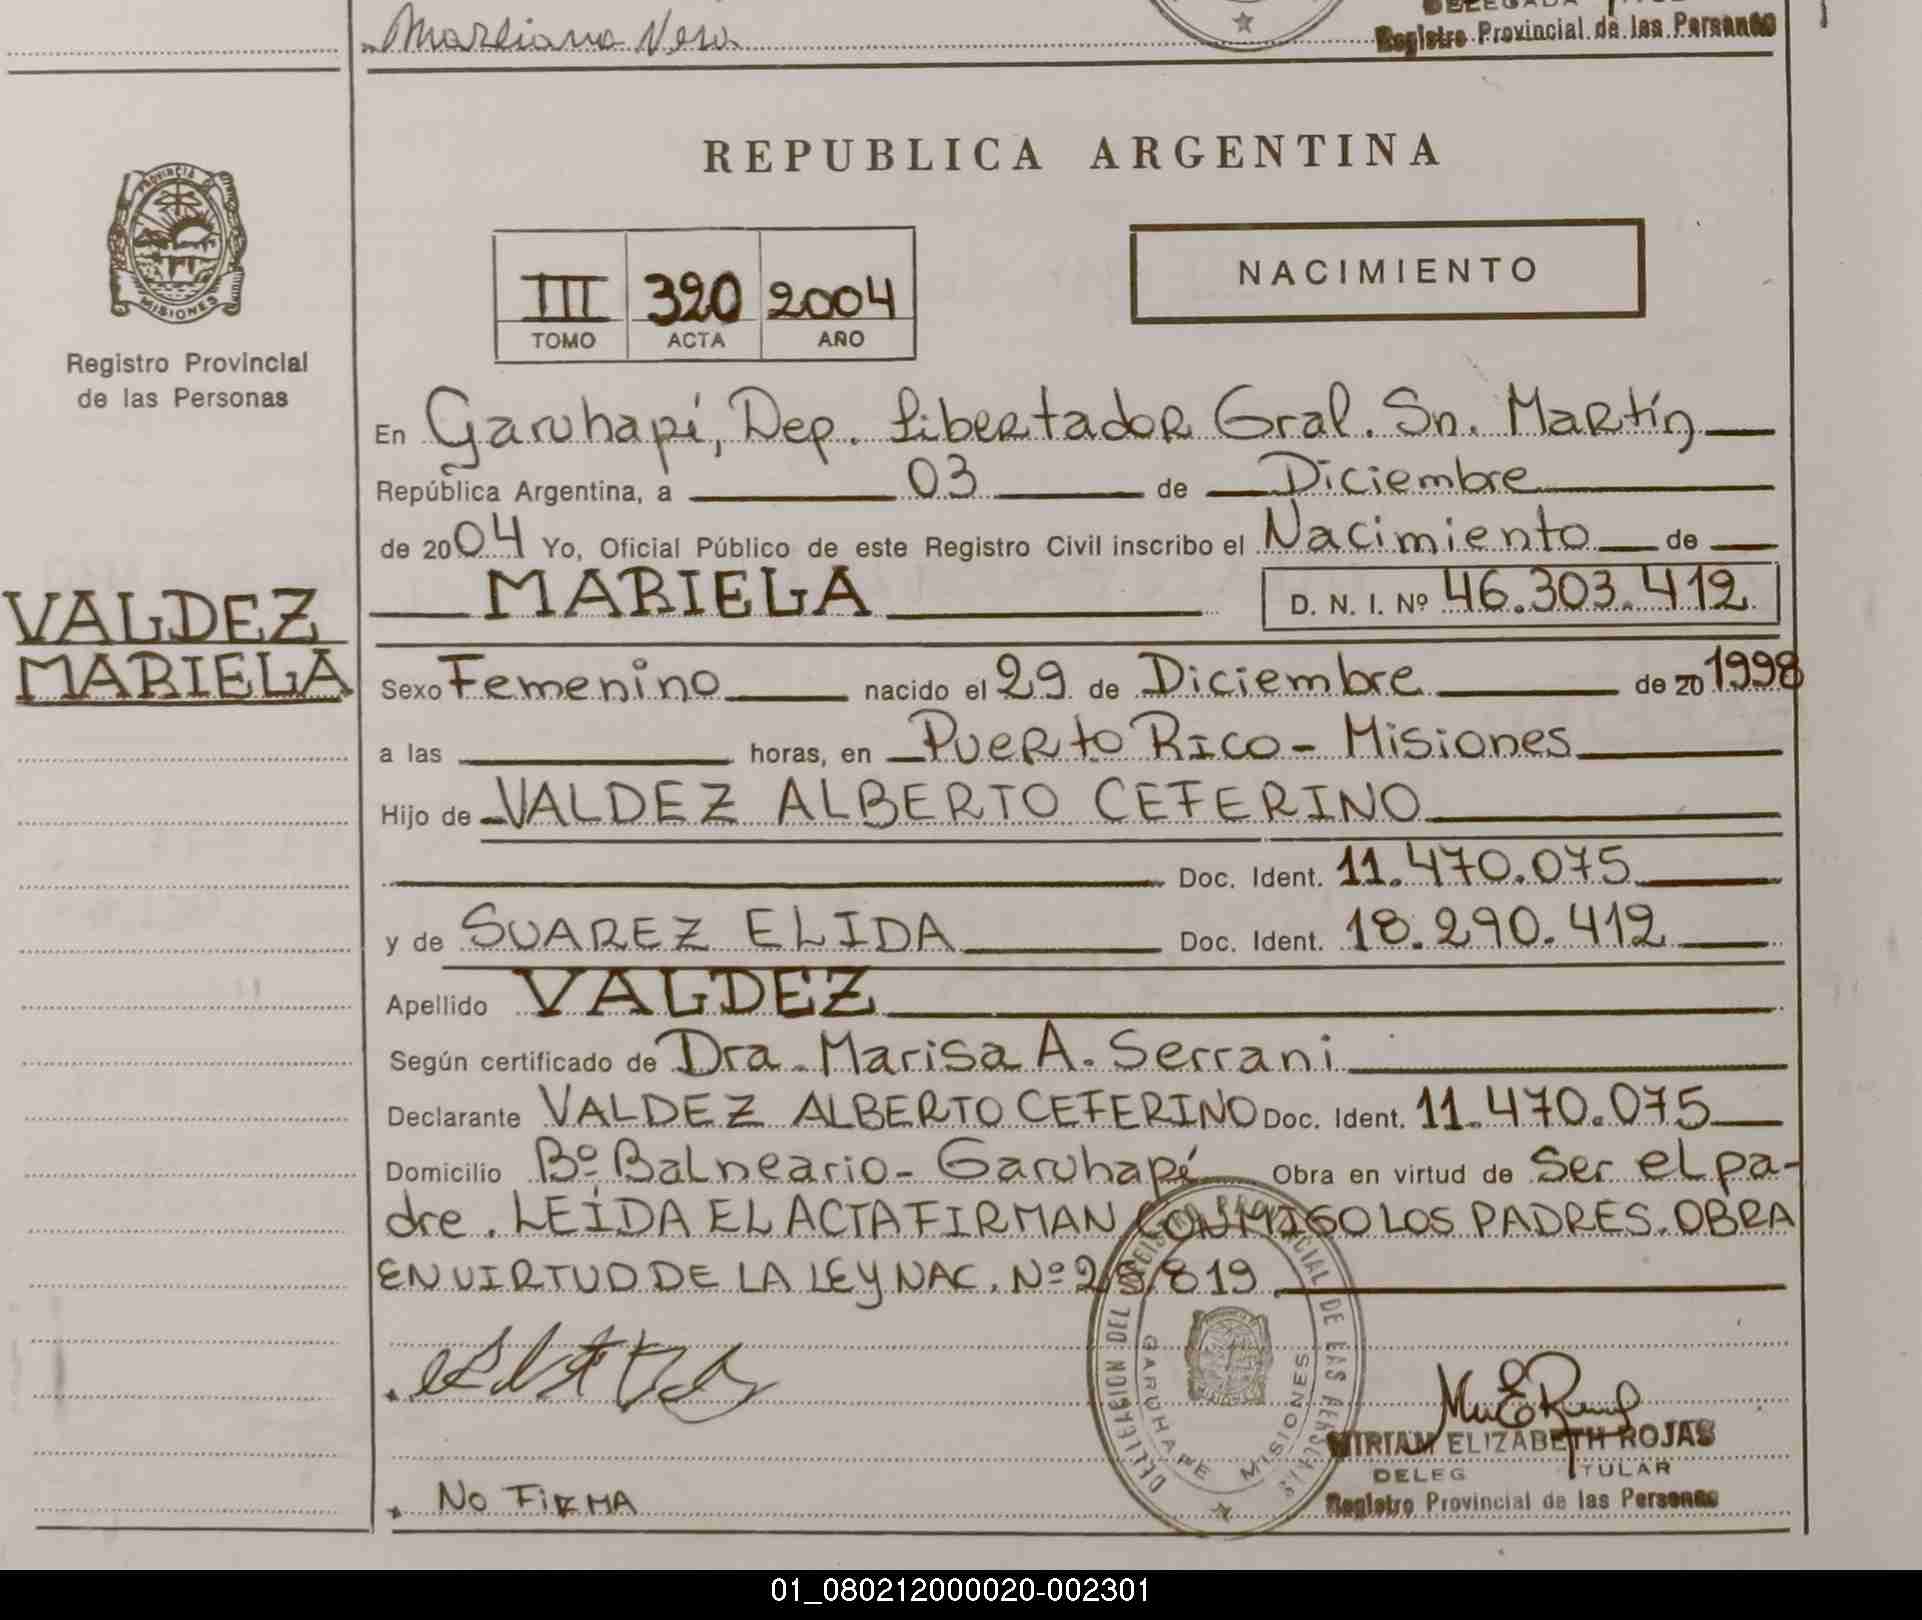 Marciana Vera
DELEGADA TITULAR
Registro Provincial de las Personas
PROVINCIA DE
MISIONES
Registro Provincial
de las Personas
REPUBLICA ARGENTINA
III 320 2004
TOMO ACTA AÑO
NACIMIENTO
En Garuhapí, Dep. Libertador Gral. Sn. Martín
República Argentina, a 03 de Diciembre
de 2004 Yo, Oficial Público de este Registro Civil inscribo el Nacimiento de
MARIELA D. N. I. Nº 46.303.412
VALDEZ
MARIELA
Sexo Femenino nacido el 29 de Diciembre de 20 1998
a las horas, en Puerto Rico - Misiones
Hijo de VALDEZ ALBERTO CEFERINO
Doc. Ident. 11.470.075
y de SUAREZ ELIDA Doc. Ident. 18.290.412
Apellido VALDEZ
Según certificado de Dra. Marisa A. Serrani
Declarante VALDEZ ALBERTO CEFERINO Doc. Ident. 11.470.075
Domicilio Bº Balneario - Garuhapé Obra en virtud de Ser el pa-
dre. LEÍDA EL ACTA FIRMAN CONMIGO LOS PADRES. OBRA
EN VIRTUD DE LA LEY NAC. Nº 25.819
DELEGACION DEL REGISTRO PROVINCIAL DE LAS PERSONAS
GARUHAPE MISIONES
MIRIAM ELIZABETH ROJAS
DELEG TITULAR
Registro Provincial de las Personas
No FIRMA
01_080212000020-002301